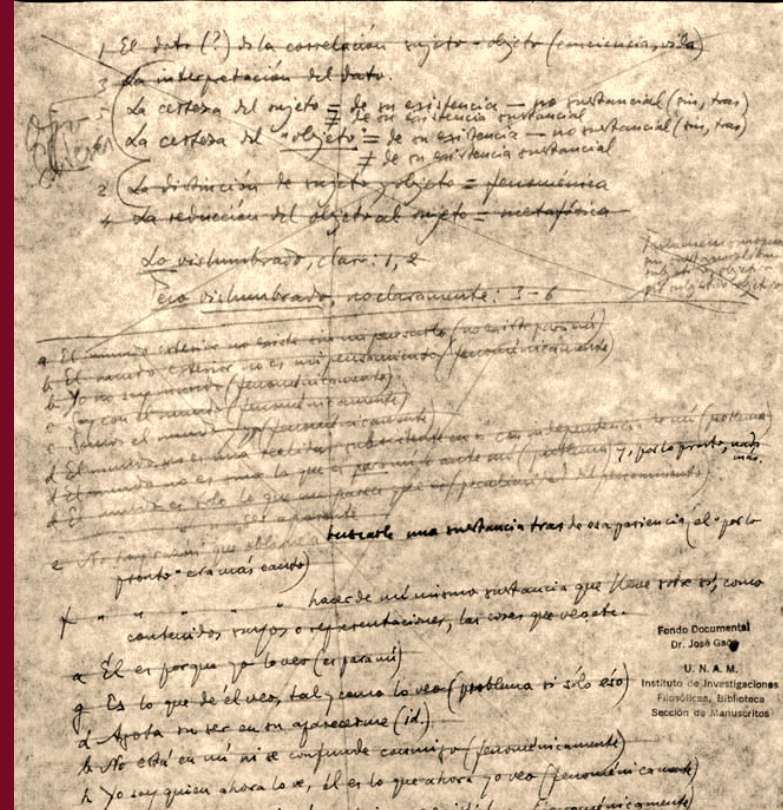 1 El dato (?) de la correlación sujeto-objeto (conciencia, vida)
3 La interpretación del dato.
5 La certeza del sujeto = de su existencia — no sustancial (sin, tras)
≠ de su existencia sustancial
6 La certeza del "objeto" = de su existencia — no sustancial (sin, tras)
≠ de su existencia sustancial
2 La distinción de sujeto y objeto = fenoménica
4 La reducción del objeto al sujeto = metafísica
Lo vislumbrado, claro: 1, 2
Pero vislumbrado, no claramente: 3-6
a El mundo exterior no existe sin mi pensarlo (no existe para mí)
b El mundo exterior no es mi pensamiento (fenoménicamente)
b Yo no soy mundo (fenoménicamente)
c Soy con el mundo (fenoménicamente)
c Somos el mundo y yo (fenoménicamente)
d El mundo no es una realidad subsistente en sí con independencia de mí (problema)
d El mundo no es sino lo que es para mí o ante mí (problema)
d El mundo es sólo lo que me parece que es (peculiaridad del pensamiento) y, por lo pronto, nada más.
ser aparente
e No hay razón que obligue a buscarle una sustancia tras de esa apariencia (el "por lo
pronto" era más cauto)
f " " " " " hacer de mí mismo sustancia que lleve sobre sí, como
contenidos suyos o representaciones, las cosas que veo etc.
a Él es porque yo lo veo (es para mí)
g Es lo que de él veo, tal y como lo veo (problema si sólo eso)
d Agota su ser en su aparecerme (id.)
b No está en mí ni se confunde conmigo (fenoménicamente)
h Yo soy quien ahora lo ve, él es lo que ahora yo veo (fenoménicamente)
Fondo Documental
Dr. José Gaos
U. N. A. M.
Instituto de Investigaciones
Filosóficas, Biblioteca
Sección de Manuscritos